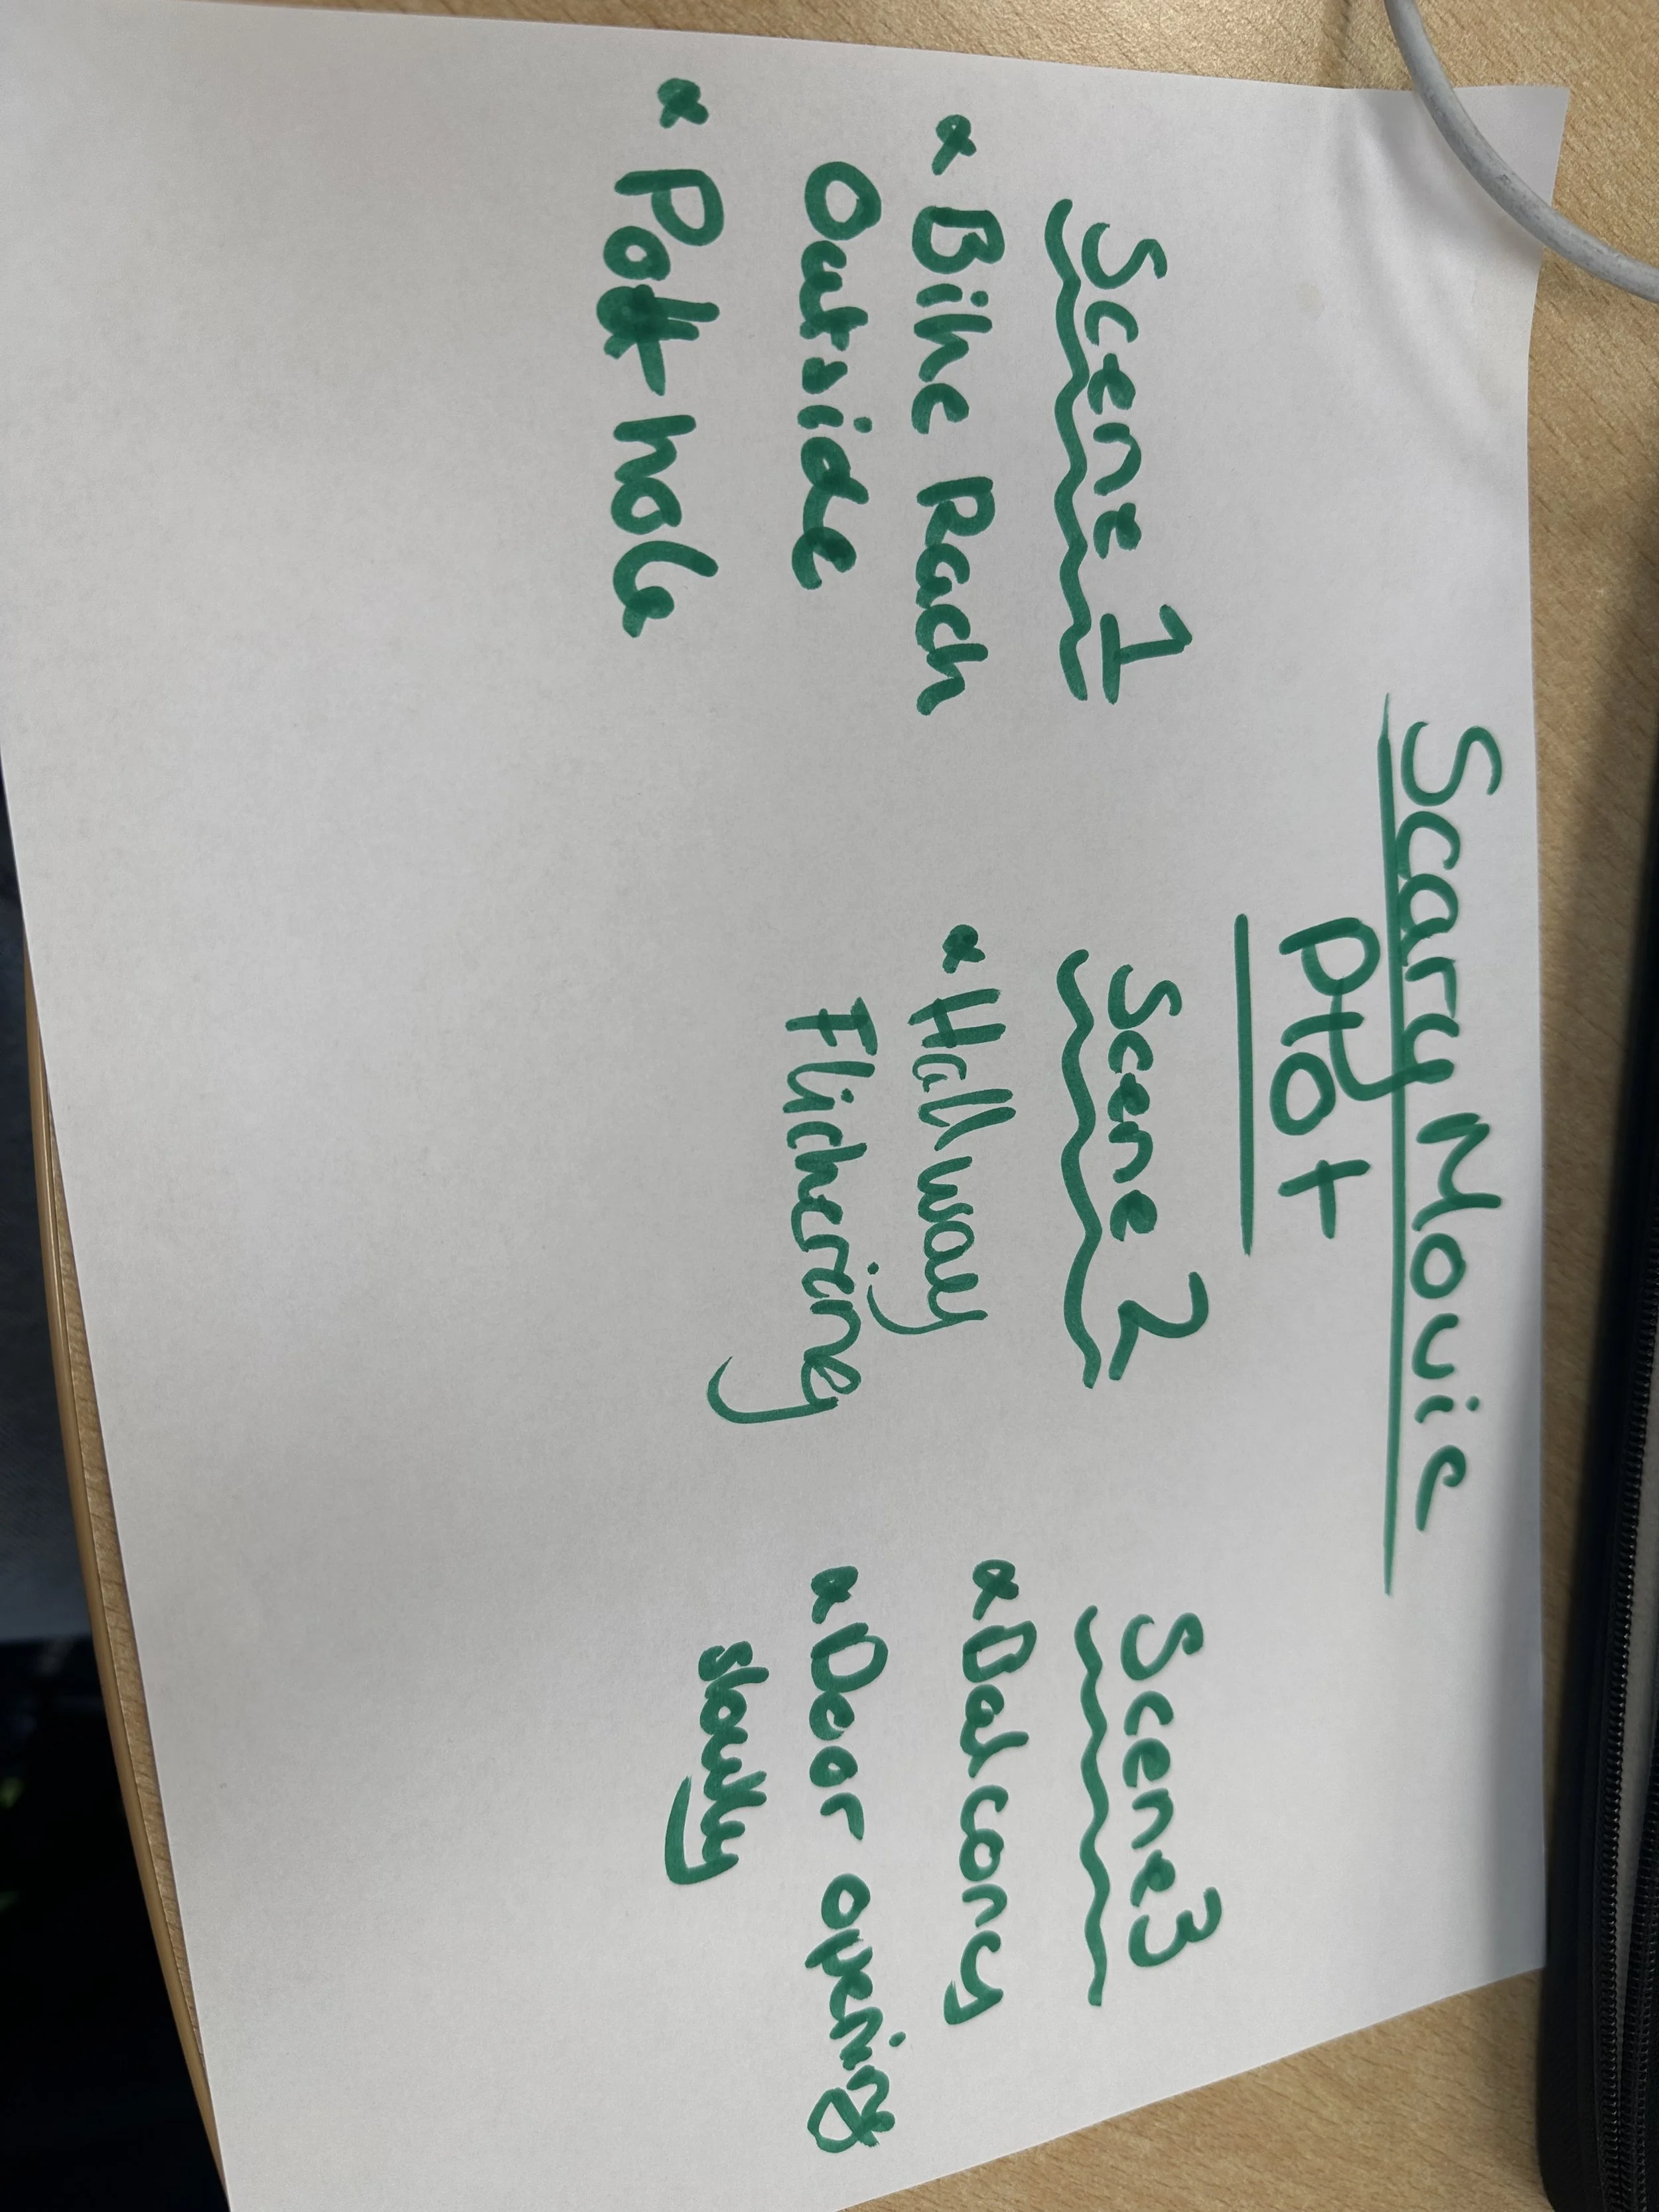 Scary Movie
Plot
Scene 1
x Bike Rack
Outside
x Pot hole
Scene 2
x Hallway
Flickering
Scene 3
x Balcony
x Door opening
slowly